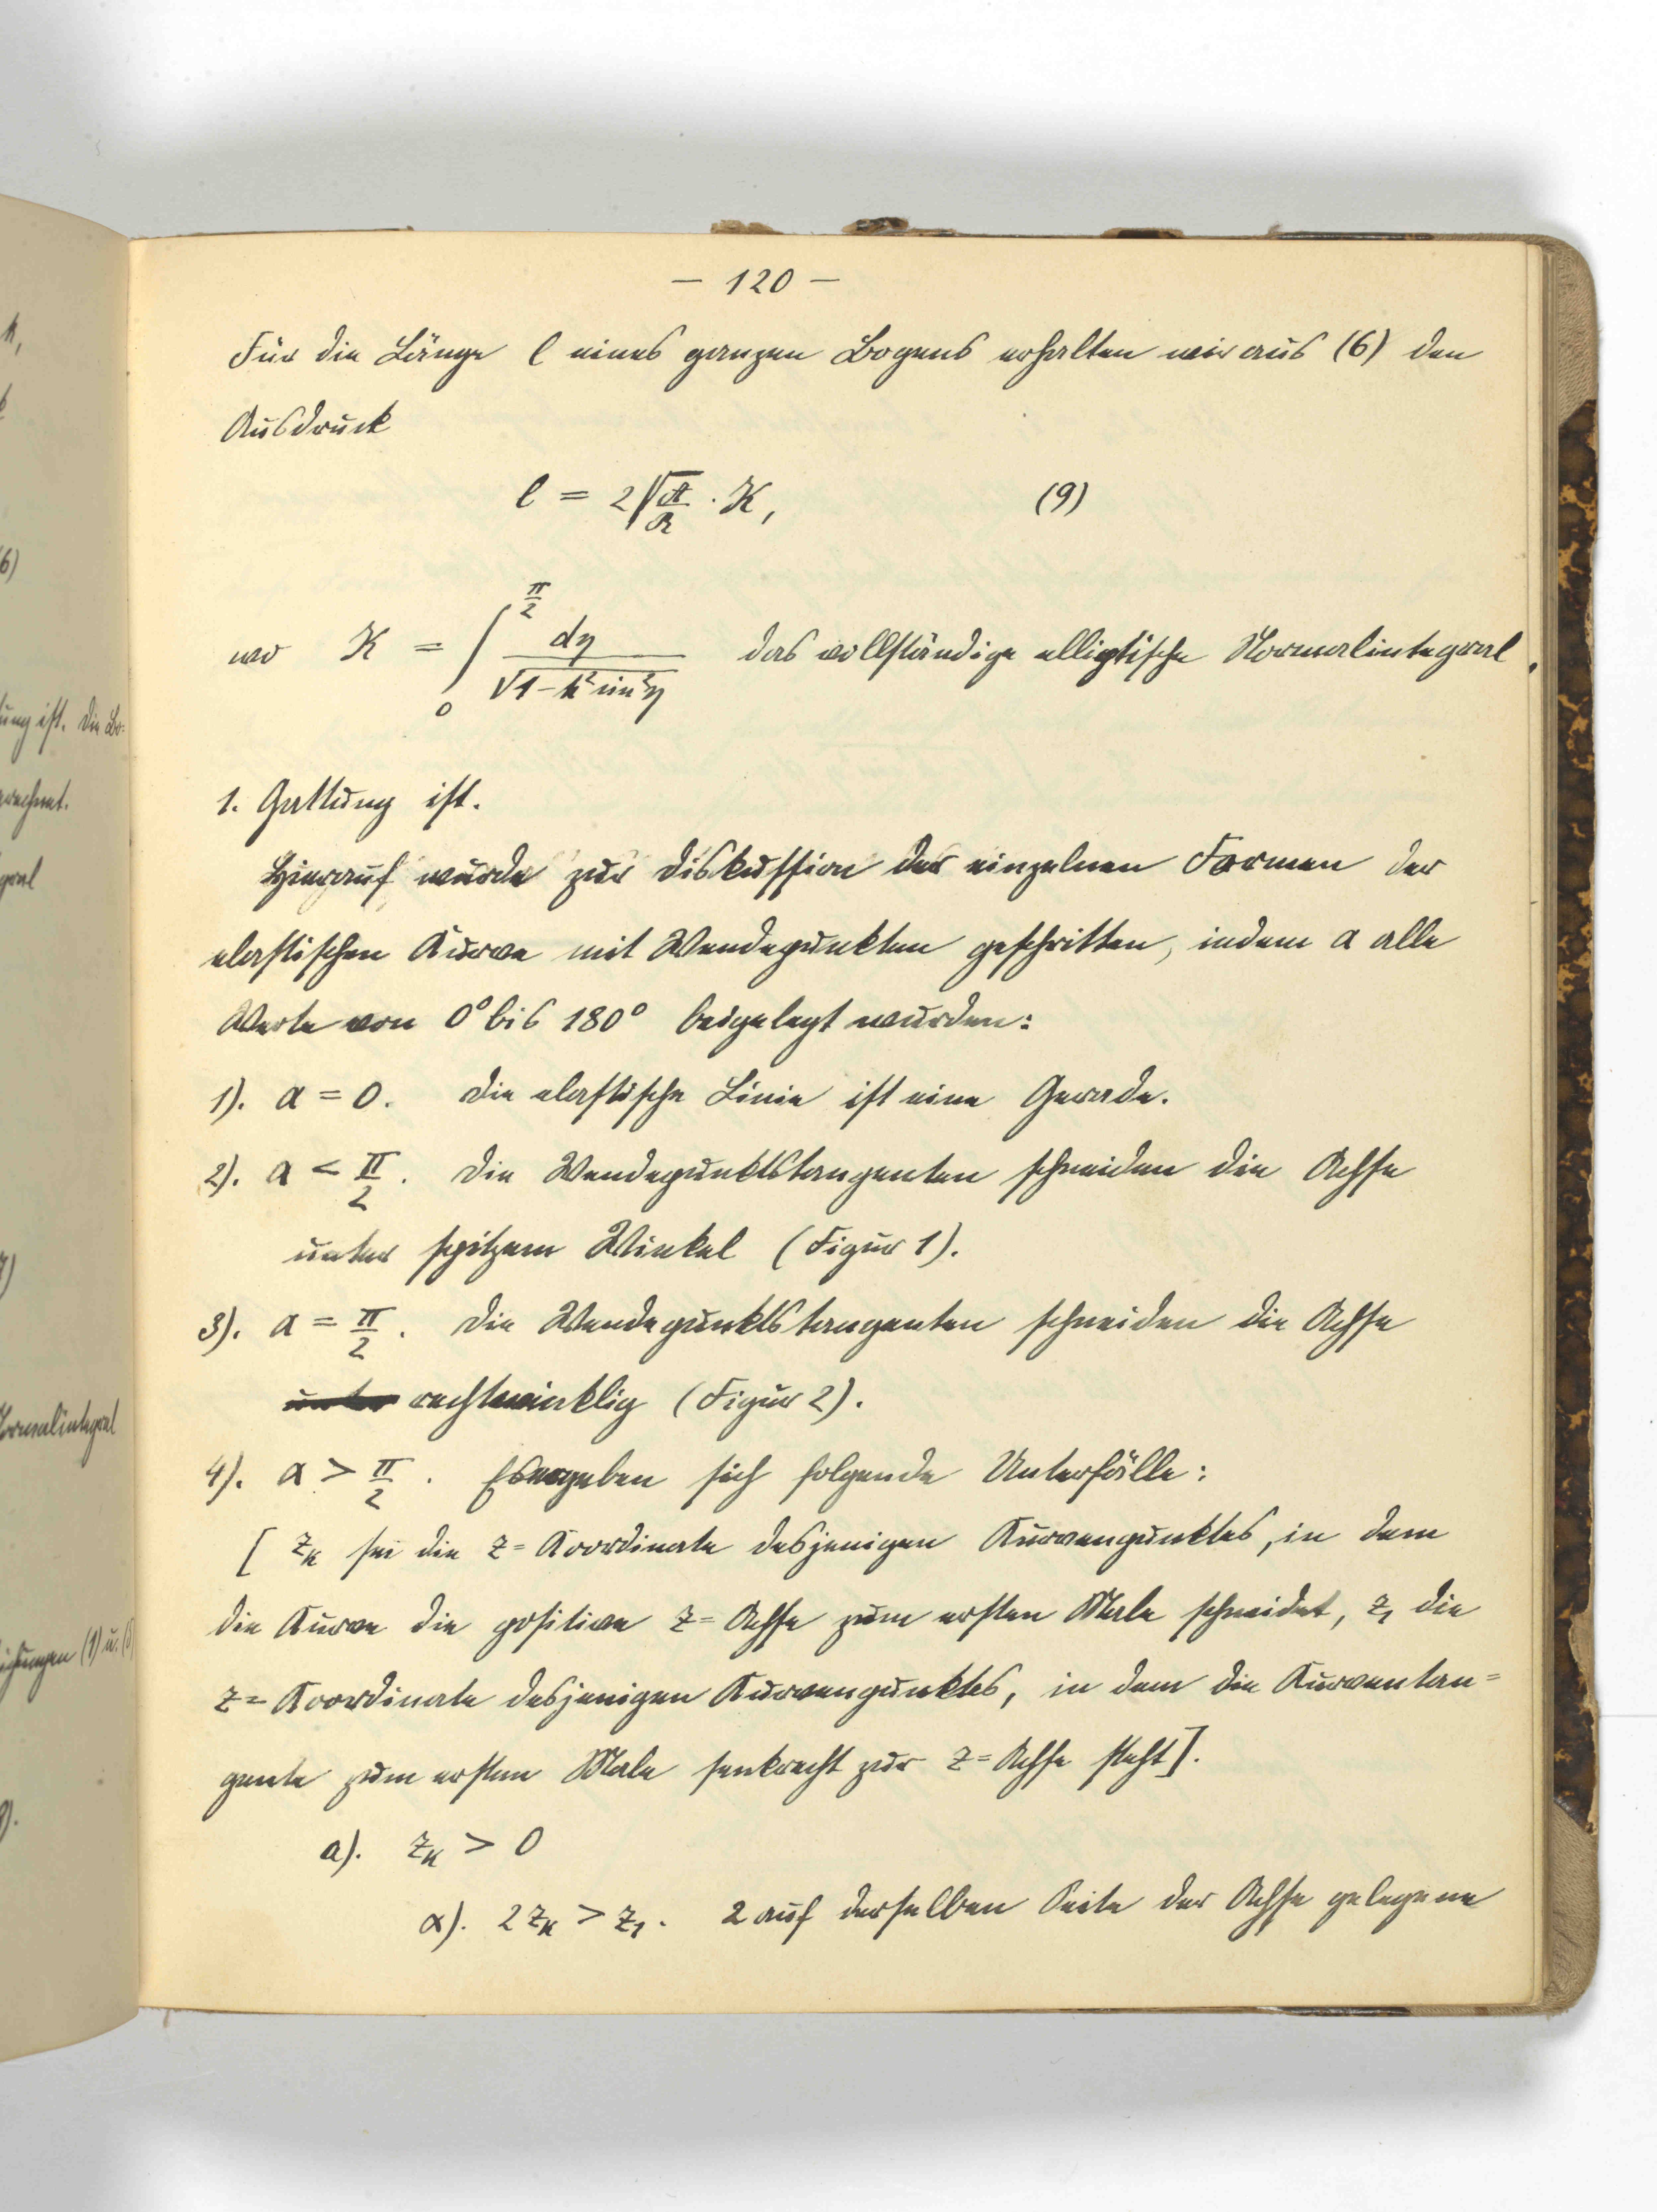 — 120 —
Für die Länge l eines ganzen Bogens erhalten wir aus (6) den
Ausdruck
l = 2√(A/R) · K, (9)
wo K = ∫₀^(π/2) dη / √(1 − k² sin² η) das vollständige elliptische Normalintegral
1. Gattung ist.
Hierauf wurde zur Diskussion der einzelnen Formen der
elastischen Kurve mit Wendepunkten geschritten, indem α alle
Werte von 0° bis 180° beigelegt wurden:
1). α = 0. Die elastische Linie ist eine Gerade.
2). α < π/2. Die Wendepunktstangenten schneiden die Achse
unter spitzem Winkel (Figur 1).
3). α = π/2. Die Wendepunktstangenten schneiden die Achse
rechtwinklig (Figur 2).
4). α > π/2. Es ergeben sich folgende Unterfälle:
[ zₖ sei die z=Koordinate desjenigen Kurvenpunktes, in dem
die Kurve die positive z=Achse zum ersten Male schneidet, z₁ die
z=Koordinate desjenigen Kurvenpunktes, in dem die Kurventan=
gente zum ersten Male senkrecht zur z=Achse steht].
a). zₖ > 0
α). 2zₖ > z₁. 2 auf derselben Seite der Achse gelegene